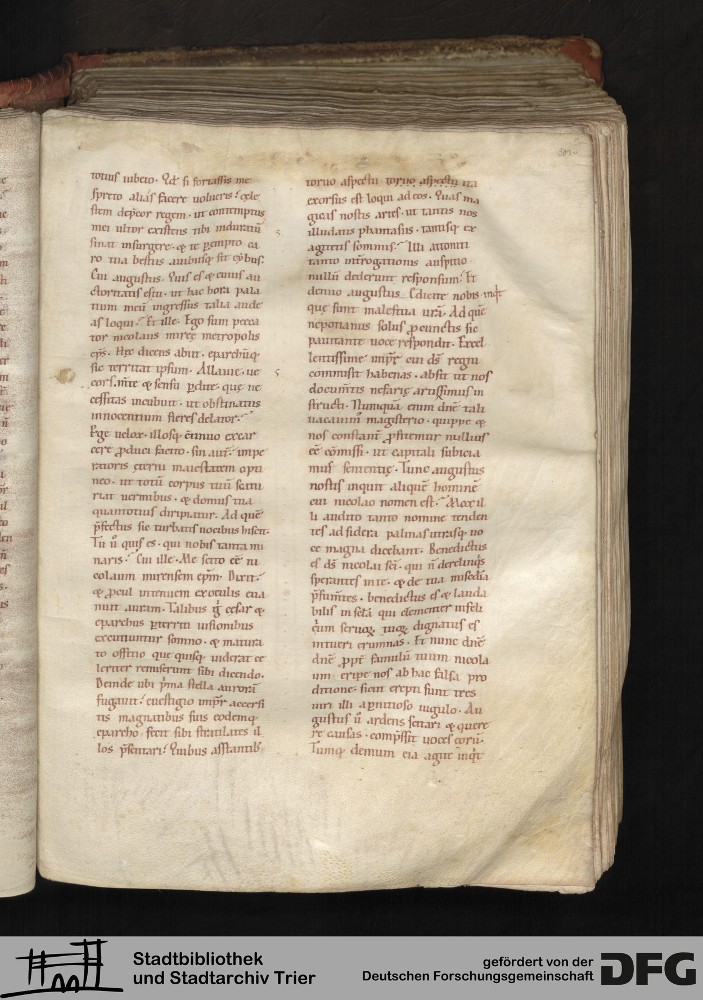 totius iubeto. Qđ si fortassis me
spreto alias facere volueris? cele
stem dep̄cor regem. ut contemptus
mei ultor existens tibi induratū
sinat insurgere. & te perempto ca
ro tua bestiis auibusq; sit cybus.
Cui augustus. Quis es & cuius au
ctoritatis estu. ut hac hora pala
tium meū ingressus talia aude
as loqui? Et ille. Ego sum pecca
tor nicolaus mireę metropolis
ep̄s. Hęc dicens abiit. eparchūq;
sic territat ipsum. Allauie. ue
cors m̄te & sensu p̱dite. quę ne
cessitas incubuit. ut obstinatus
innocentium fieres delator?
Perge uelox. illosq; c̄tinuo excar
cere p̱duci facito. sin aut̄. impe
ratoris ęterni maiestatem opti
neo. ut totū corpus tuū scatu
riat uermibus. & domus tua
quantotius diripiatur. Ad quē
p̄fectus sic turbatis uocibus infert.
Tu ū quis es. qui nobis tanta mi
naris? Cui ille. Me scito eē ni
colaum mirensem ep̄m. Dixit.
& p̱cul uitenuem exoculis eua
nuit auram. Talibus ḡ cęsar &
eparchus p̱territi uisionibus
excutiuntur somno. & matura
to offitio que quisq; uiderat ce
leriter remiserunt sibi dicendo.
Deinde ubi p̄ma stella auroram
fugauit. euestigio imp̄r accersi
tis magnatibus suis eodemq;
eparcho. fecit sibi stratilates il
los p̄sentari. Quibus asstantib;
toruo aspectu toruo aspectu ita
exorsus est loqui ad eos. Quas ma
gicas nostis artes. ut tantis nos
illudatis phantasiis. tantisq; ex
agitetis somniis? Illi attoniti
tanto int̄rogationis auspitio
nullū dederunt responsum. Et
denuo augustus. Edicite nobis inq̄t
quę sunt malefitia ur̄a. Ad quę
nepotianus solus p̱ cunctis sic
pauitante uoce respondit. Excel
lentissime imp̄r cui d̄s regni
commisit habenas. absit ut nos
docum̄tis nefarię artis simus in
structi. Nunquā enim dn̄e tali
uacauim; magisterio. quippe &
nos constam; p̱fitemur nullius
eē c̄missi. ut capitali subicia
mur sententię. Tunc augustus
nostis inquit aliquē hominē
cui nicolao nomen est? Mox il
li audito tanto nomine tenden
tes ad sidera palmas utrasq; uo
ce magna dicebant. Benedictus
es d̄s nicolai sc̄i. qui n̄ derelinq̄s
sperantes in te. & de tua misedia
p̄sum̄tes. benedictus es & lauda
bilis in sc̄la. qui clementer infeli
cium seruoꝝ tuoꝝ dignatus es
intueri erumnas. Et nunc dn̄e
dn̄e p̱pt̄ famulū tuum nicola
um. eripe nos ab hac falsa pro
ditione. sicut erepti sunt tres
uiri illi a p̱nitioso iugulo. Au
gustus ū ardens scitari & quere
re causas. comp̄ssit uoces eorū.
Tumq; demum eia agite inq̄t
Stadtbibliothek
und Stadtarchiv Trier
gefördert von der
Deutschen Forschungsgemeinschaft
DFG